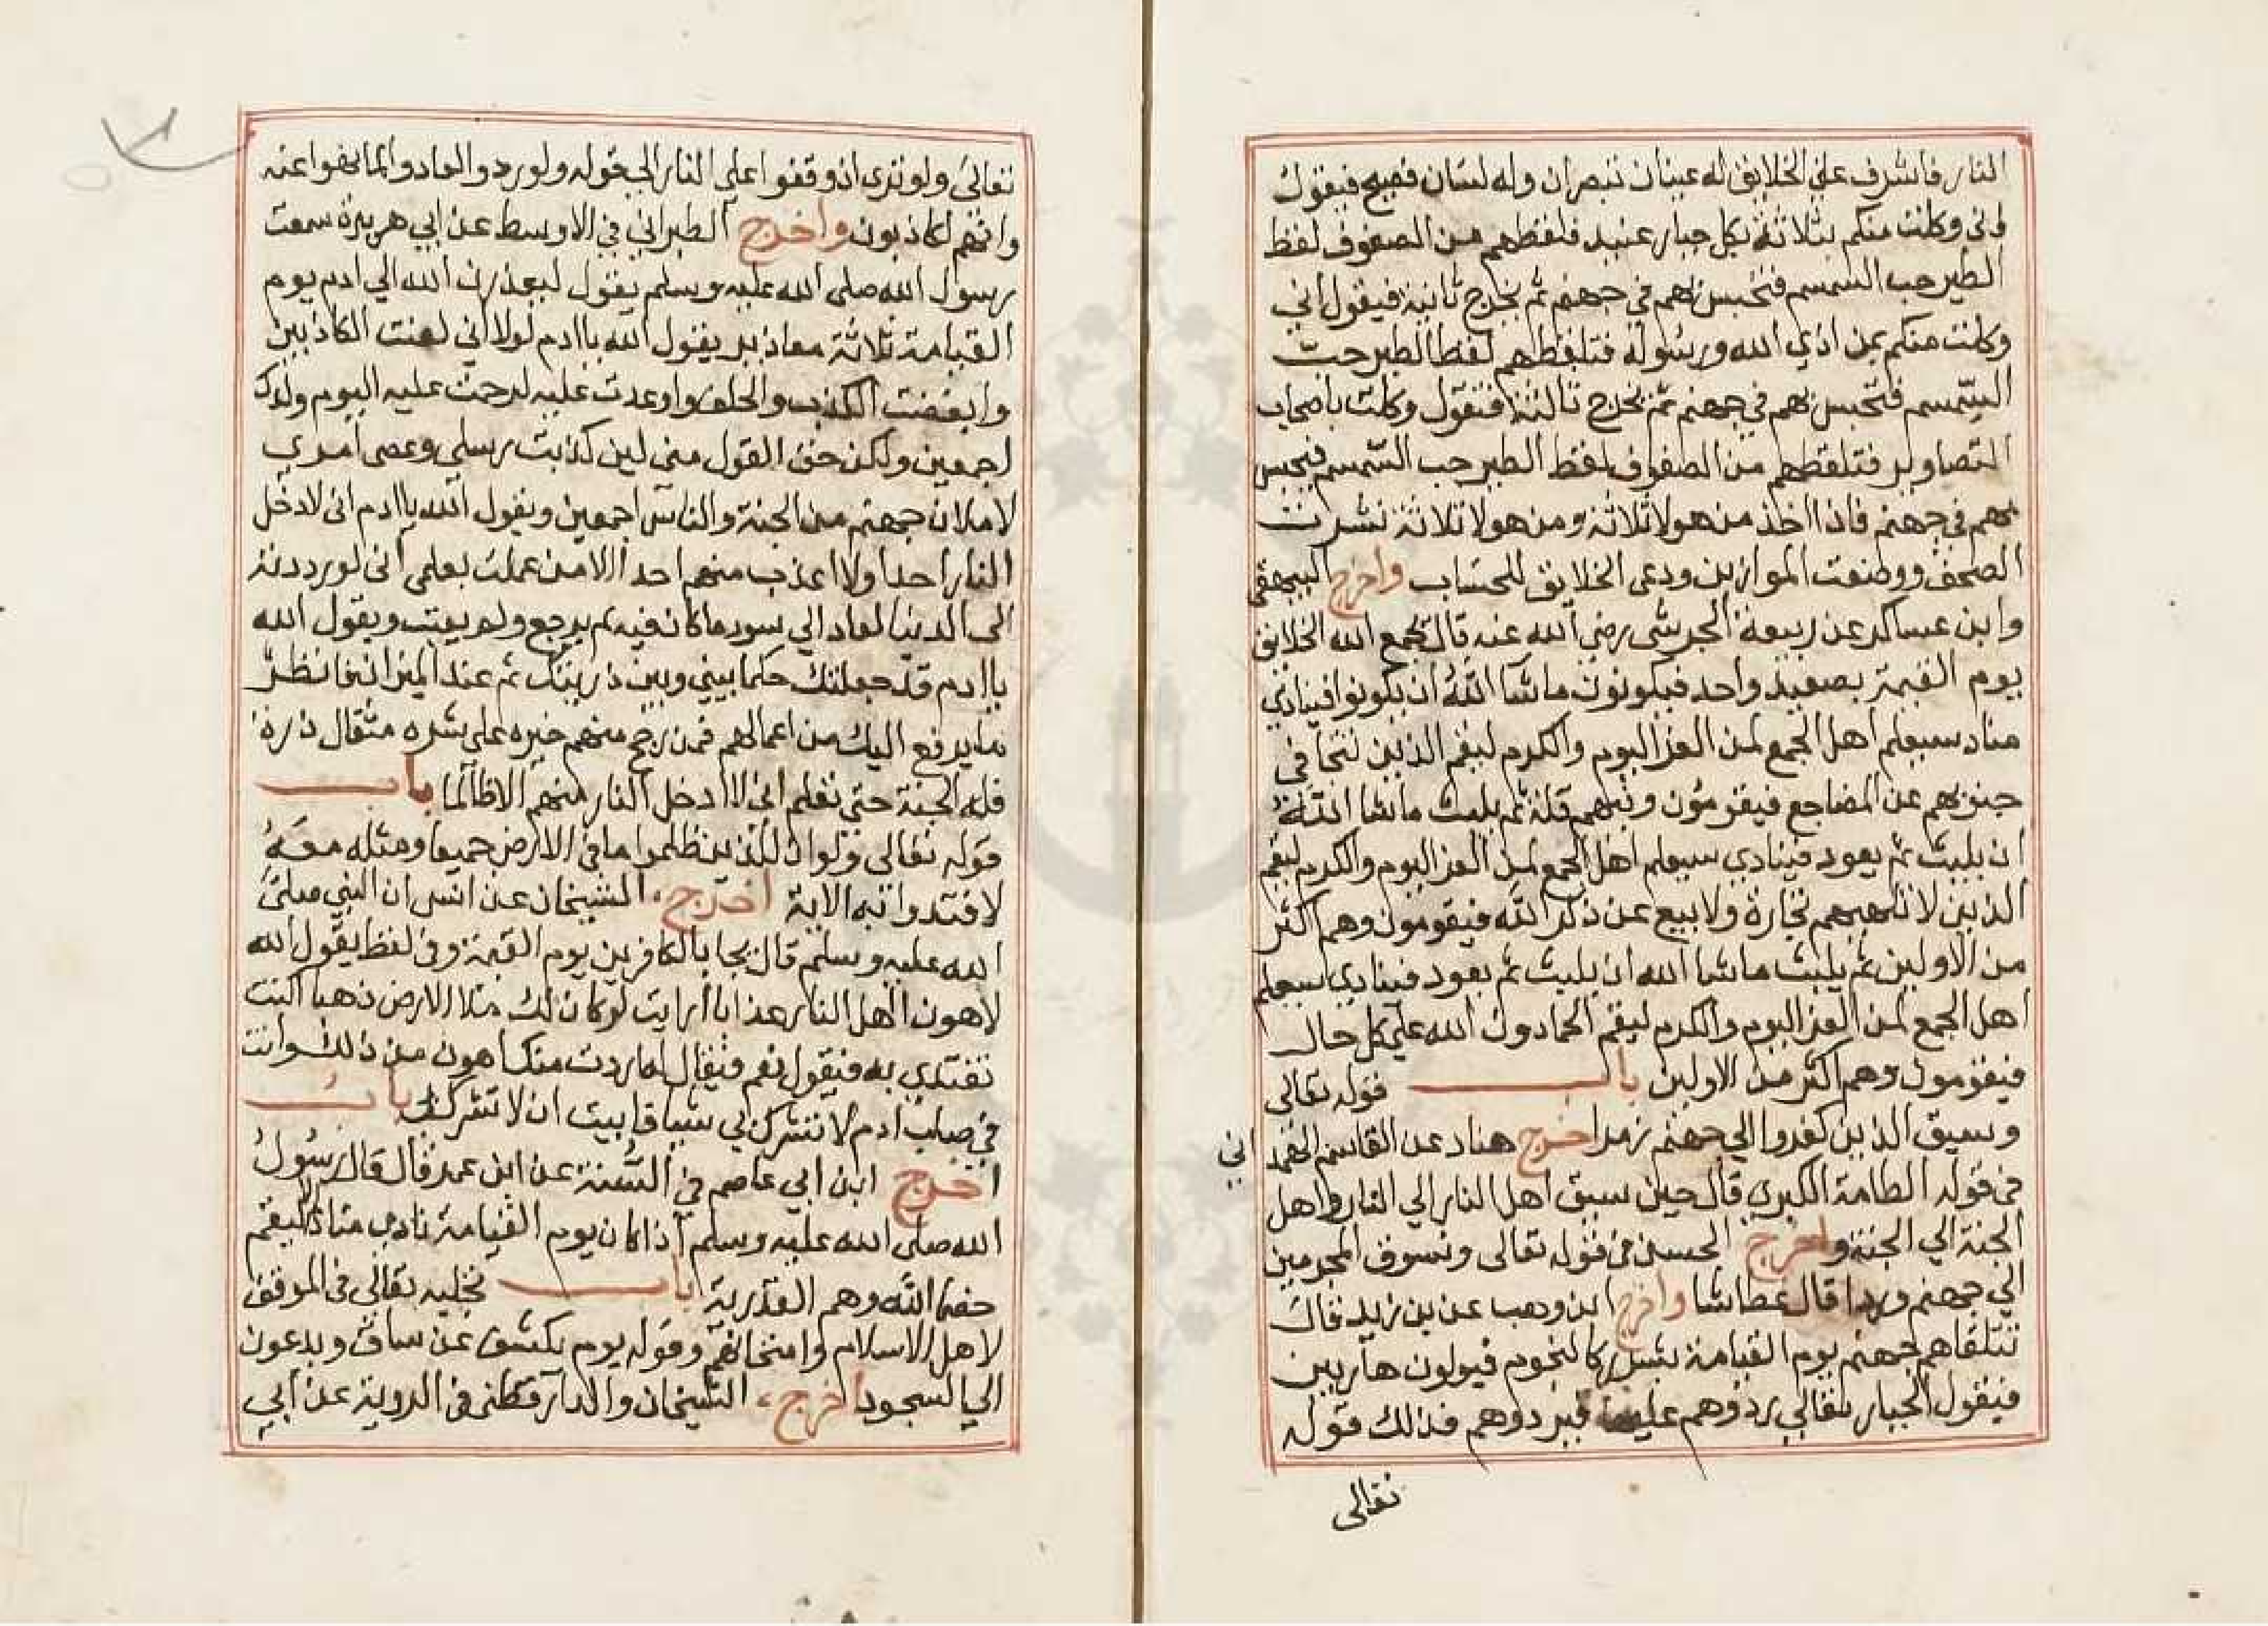 النار فاشرف علي الخلايق له عينان تبصران وله لسان فصيح فيقول
اني وكلت منكم بثلاثة بكل جبار عنيد فلقطهم من الصفوف لقط
الطير حب السمسم فتحبس بهم في جهنم ثم تخرج ثانية فيقول اني
وكلت منكم بمن اذي الله ورسوله فتلقطهم لقط الطير حب
السمسم فتحبس بهم في جهنم ثم تخرج ثالثة فتقول وكلت باصحاب
التصاوير فتلقطهم من الصفوف لقط الطير حب السمسم فيحبس
بهم في جهنم فاذا اخذ من هولا ثلاثة ومن هولا ثلاثة نشرت
الصحف ووضعت الموازين ودعي الخلايق للحساب واخرج البيهقي
وابن عساكر عن ربيعة الجرشى رضي الله عنه قال يجمع الله الخلايق
يوم القيمة بصعيد واحد فيكونون ما شا الله ان يكونوا فينادي
مناد سيعلم اهل الجمع لمن العز اليوم والكرم ليقم الذين تتجافى
جنوبهم عن المضاجع فيقومون وفيهم قلة ثم يلبث ما شا الله
ان يلبث ثم يعود فينادي سيعلم اهل الجمع لمن العز اليوم والكرم ليقم
الذين لا تلهيهم تجارة ولا بيع عن ذكر الله فيقومون وهم اكثر
من الاولين ثم يلبث ما شا الله ان يلبث ثم يعود فينادي سيعلم
اهل الجمع لمن العز اليوم والكرم ليقم الحمادون الله علي كل حال
فيقومون وهم اكثر من الاولين باب قوله تعالى
وسيق الذين كفروا الي جهنم زمرا اخرج هناد عن القاسم الهمد اني
في قوله الطامة الكبري قال حين سيق اهل النار الي النار واهل
الجنة الي الجنة واخرج الحسن في قوله تعالى ونسوق المجرمين
الي جهنم وردا قال عطاشا واخرج ابن وهب عن بن زيد قال
تتلقاهم جهنم يوم القيامة بشرر كالنجوم فيولون هاربين
فيقول الجبار تعالي ردوهم عليها فيردوهم فذلك قوله
تعالى
تعالي ولو ترى اذ وقفوا علي النار الي قوله ولو ردوا لعادوا لما نهوا عنه
وانهم لكاذبون واخرج الطبراني في الاوسط عن ابي هريرة سمعت
رسول الله صلى الله عليه وسلم يقول ليعذرن الله الي ادم يوم
القيامة ثلاثة معاذير يقول الله يا ادم لولا اني لعنت الكاذبين
وابغضت الكذب والحلف واوعدت عليه لرحمت عليه اليوم ولدك
اجمعين ولكن حق القول مني لين كذبت رسلي وعصى امري
لاملان جهنم من الجنة والناس اجمعين ويقول الله يا ادم اني لا ادخل
النار احدا ولا اعذب منهم احدا الا من علمت بعلمي اني لو رددته
الى الدنيا لعاد الي سود ما كان فيه ثم يرجع ولم يعتب ويقول الله
يا ادم قد جعلتك حكما بيني وبين ذريتك ثم عند الميزان فانظر
ما يرفع اليك من اعمالهم فمن رجح منهم خيره على شره مثقال ذرة
فله الجنة حتى تعلم اني لا ادخل النار منهم الا ظالما باب
قوله تعالى ولو ان للذين ظلموا ما في الارض جميعا ومثله معه
لافتدوا به الاية اخرج الشيخان عن انس ان النبي صلى
الله عليه وسلم قال يجا بالكافرين يوم القيمة وفي لفظ يقول الله
لاهون اهل النار عذابا ارايت لو كان لك ملا الارض ذهبا اكنت
تفتدي به فيقول نعم فيقال له اردت منك اهون من ذلك وانت
في صلب ادم لا تشرك بي شيا فابيت ان لا تشرك بي باب
اخرج ابن ابي عاصم في السنة عن ابن عمر قال قال رسول
الله صلى الله عليه وسلم اذا كان يوم القيامة نادى مناد ليقم
خصما الله وهم القدرية باب تجليه تعالى في الموقف
لاهل الاسلام وامتحانهم وقوله يوم يكشف عن ساق ويدعون
الي السجود اخرج الشيخان والدارقطني في الروية عن ابي